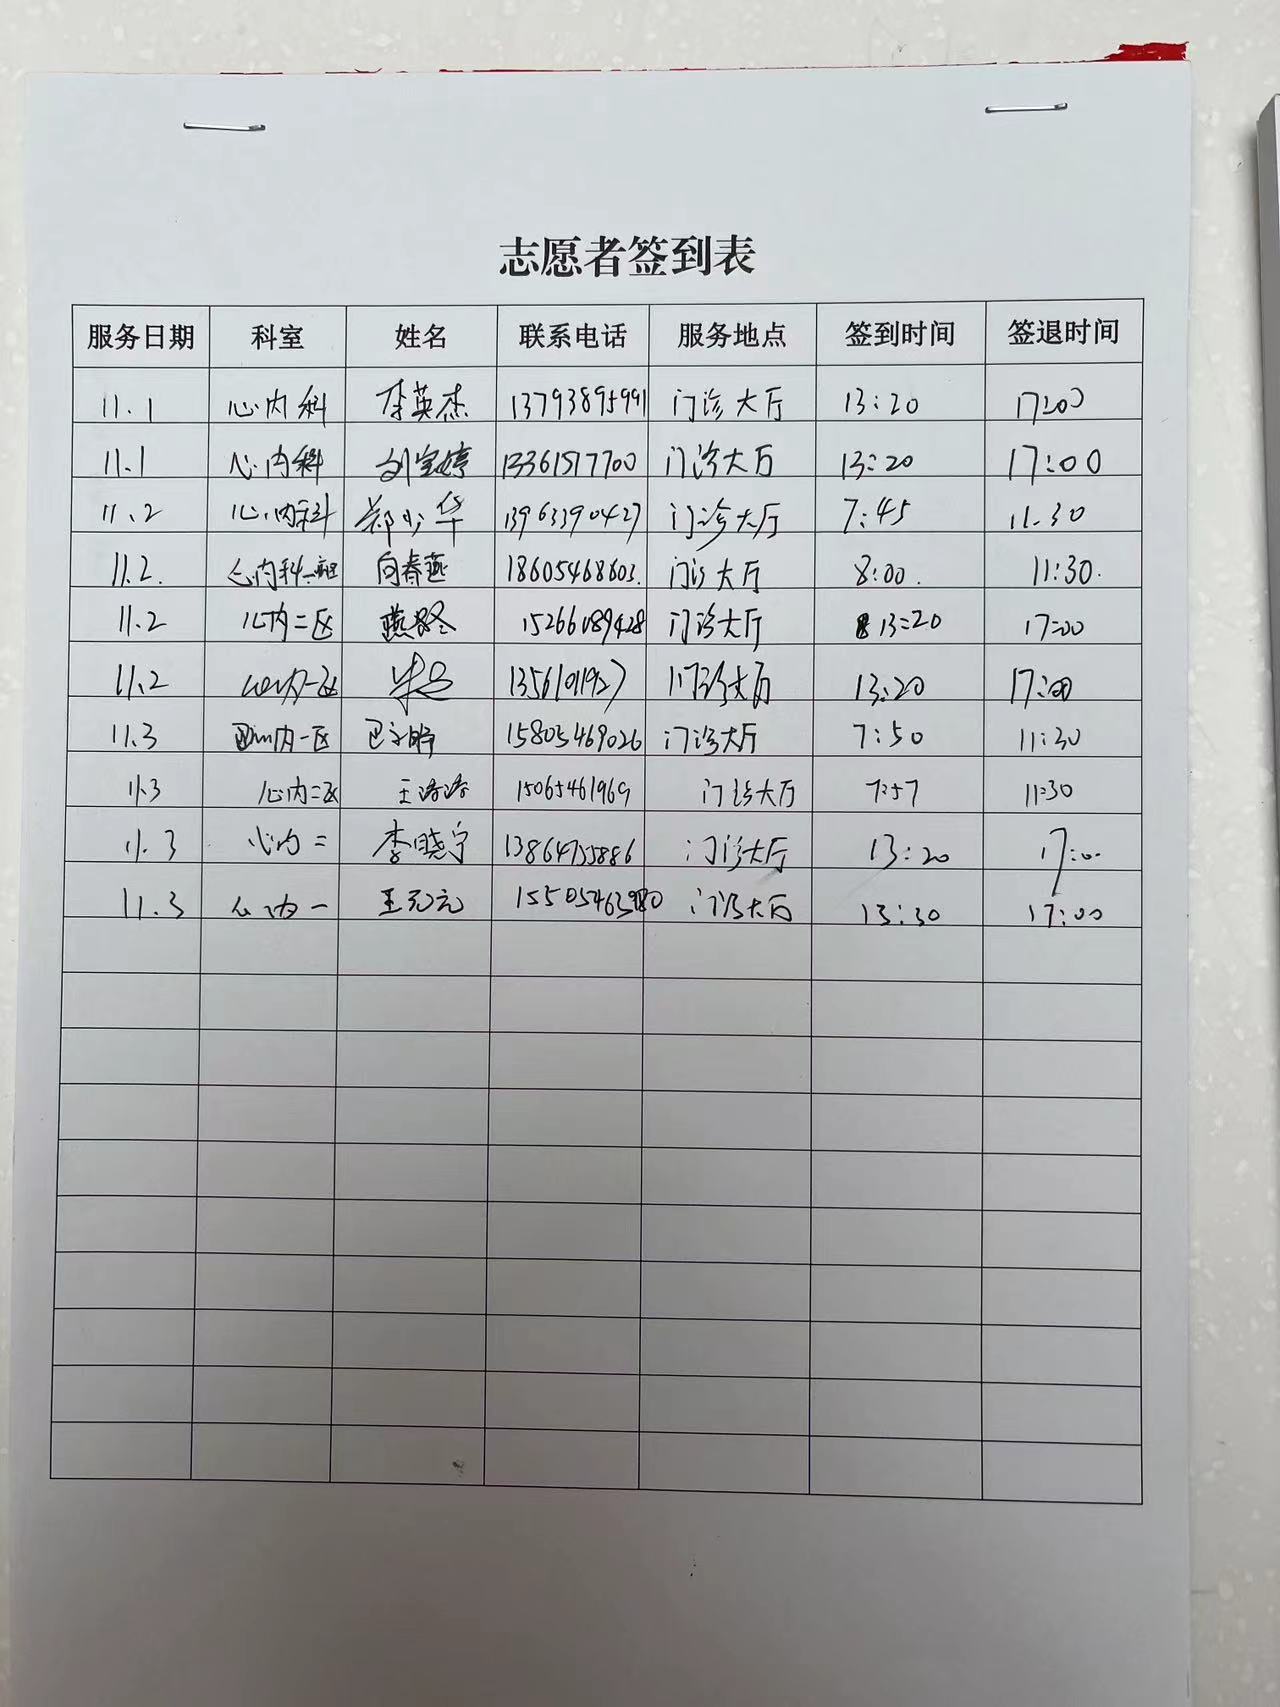 志愿者签到表
服务日期 科室 姓名 联系电话 服务地点 签到时间 签退时间
11.1 心内科 李英杰 13793895991 门诊大厅 13:20 17:00
11.1 心内科 刘宝婷 13361517700 门诊大厅 13:20 17:00
11.2 心内科 郑少华 13963390427 门诊大厅 7:45 11.30
11.2. 心内科一病区 向春燕 18605468603. 门诊大厅 8:00. 11:30.
11.2 心内二区 15266089428 门诊大厅 13:20 17:00
11.2 心内一区 门诊大厅 13:20 17:00
11.3 心内一区 15805469026 门诊大厅 7:50 11:30
11.3 心内二区 王洛洛 15065461969 门诊大厅 7:57 11:30
11.3 心内二 李晓宁 13864755886 门诊大厅 13:20 17:00
11.3 心内一 王元元 15505463980 门诊大厅 13:30 17:00